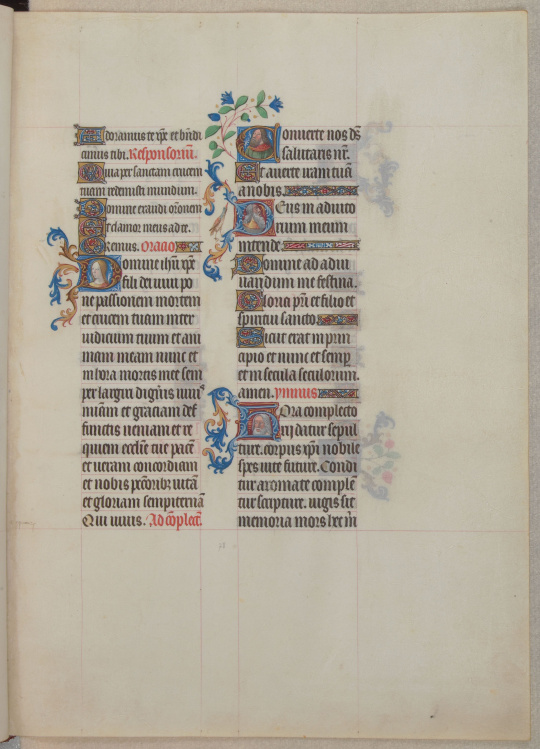 Adoramus te xpe et bndi
cimus tibi. Responsorium.
Quia per sanctam crucem
tuam redemisti mundum.
Domine exaudi oronem
Et clamor meus ad te.
Oremus. Oracio
Domine ihu xpe
fili dei uiui po
ne passionem mortem
et crucem tuam inter
iudicium tuum et ani
mam meam nunc et
in hora mortis mee sem
per largiri digneris uiuis
miam et graciam def
functis ueniam et re
quiem ecclie tue pacem
et ueram concordiam
et nobis pctoribz uitam
et gloriam sempiternam
Qui uiuis. Ad complet.
Conuerte nos ds
salutaris nr.
Et auerte iram tuam
a nobis.
Deus in adiuto
rium meum
intende
Domine ad adiu
uandum me festina.
Gloria pri et filio et
spiritui sancto.
Sicut erat in prin
cipio et nunc et semp
et in secula seculorum.
amen. ymnus
Hora completo
rij datur sepul
ture. corpus xpi nobile
spes uite future. Condi
tur aromate comple
tur scripture. iugis sit
memoria mors hec m